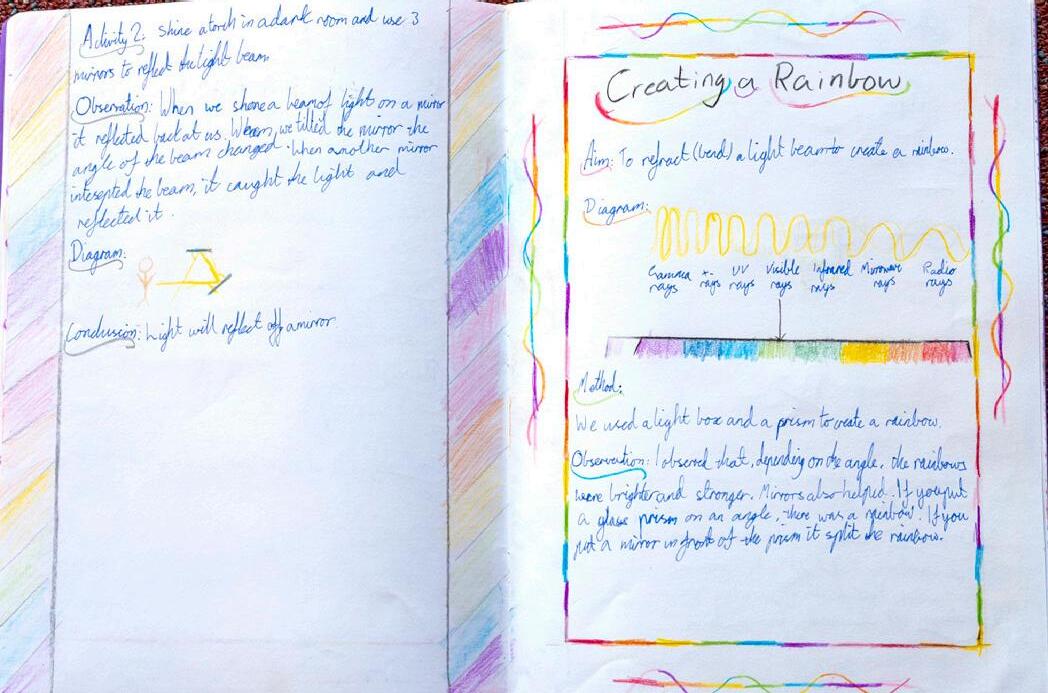 Activity 2: Shine a torch in a dark room and use 3
mirrors to reflect the light beam
Observation: When we shone a beam of light on a mirror
it reflected back at us. When we tilted the mirror the
angle of the beam changed. When another mirror
intesepted the beam, it caught the light and
reflected it.
Diagram:
Conclusion: Light will reflect off a mirror.
Creating a Rainbow
Aim: To refract (bend) a light beam to create a rainbow.
Diagram:
Gamma rays
x-rays
UV rays
Visible rays
Infrared rays
Microwave rays
Radio rays
Method:
We used a light box and a prism to create a rainbow.
Observation: I observed that, depending on the angle, the rainbows
were brighter and stronger. Mirrors also helped. If you put
a glass prism on an angle, there was a rainbow. If you
put a mirror in front of the prism it split the rainbow.